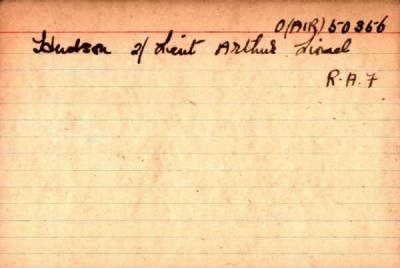 O(AIR)50356
Hudson 2/ Lieut Arthur Lionel
R.A.F